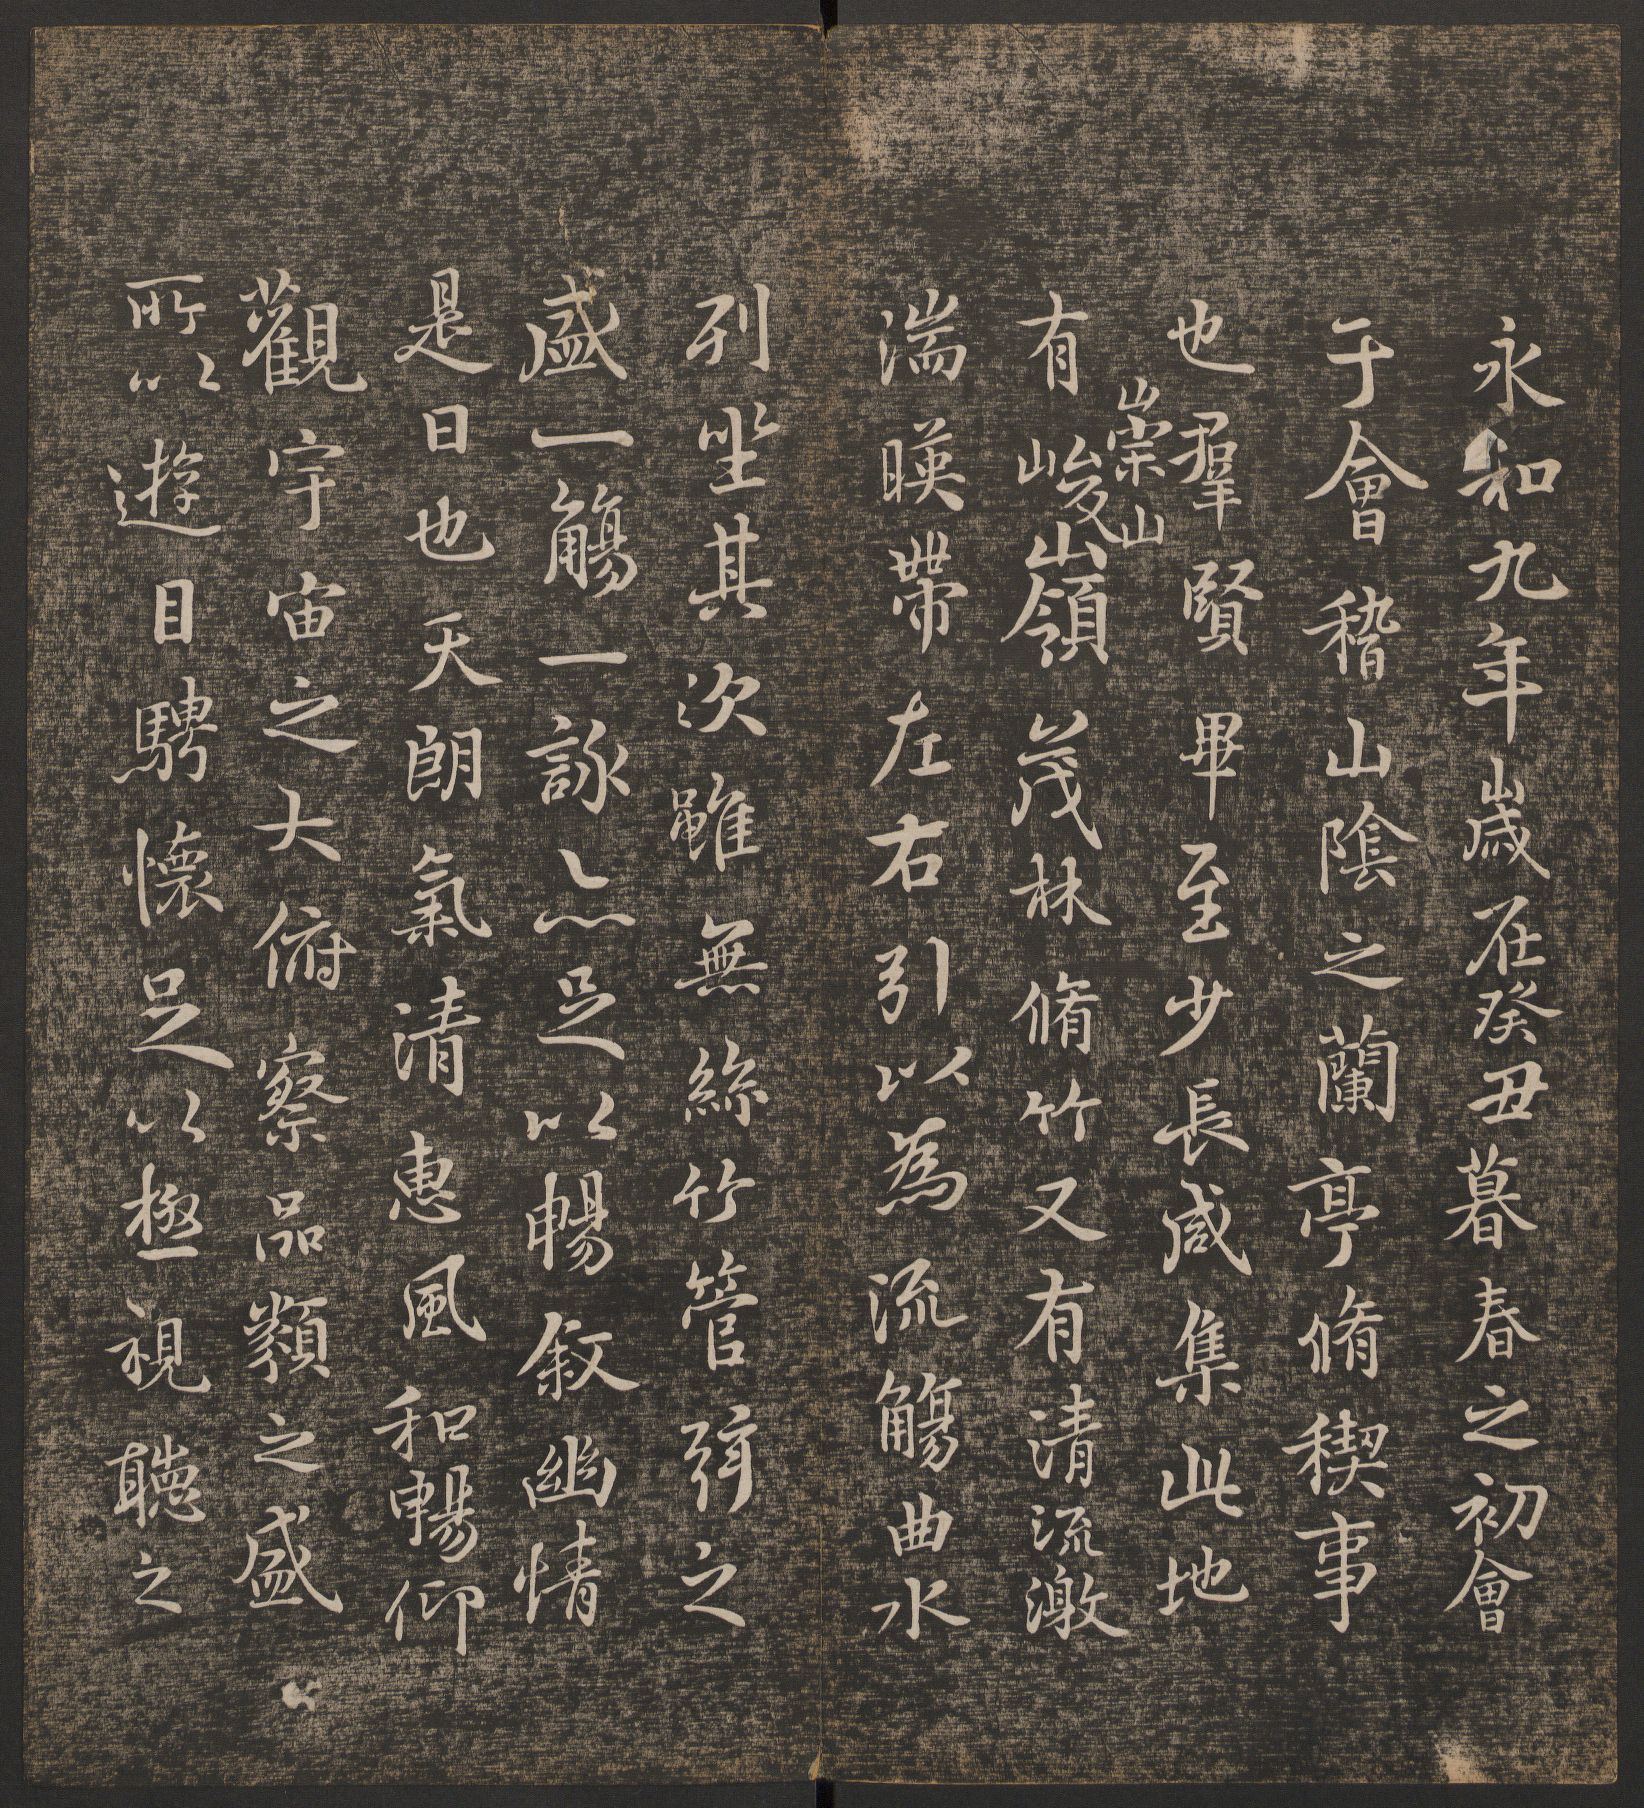 永和九年歲在癸丑暮春之初會
于會稽山陰之蘭亭脩稧事
也羣賢畢至少長咸集此地
有崇山峻嶺茂林脩竹又有清流激
湍暎帶左右引以為流觴曲水
列坐其次雖無絲竹管弦之
盛一觴一詠亦足以暢敘幽情
是日也天朗氣清惠風和暢仰
觀宇宙之大俯察品類之盛
所以遊目騁懷足以極視聽之